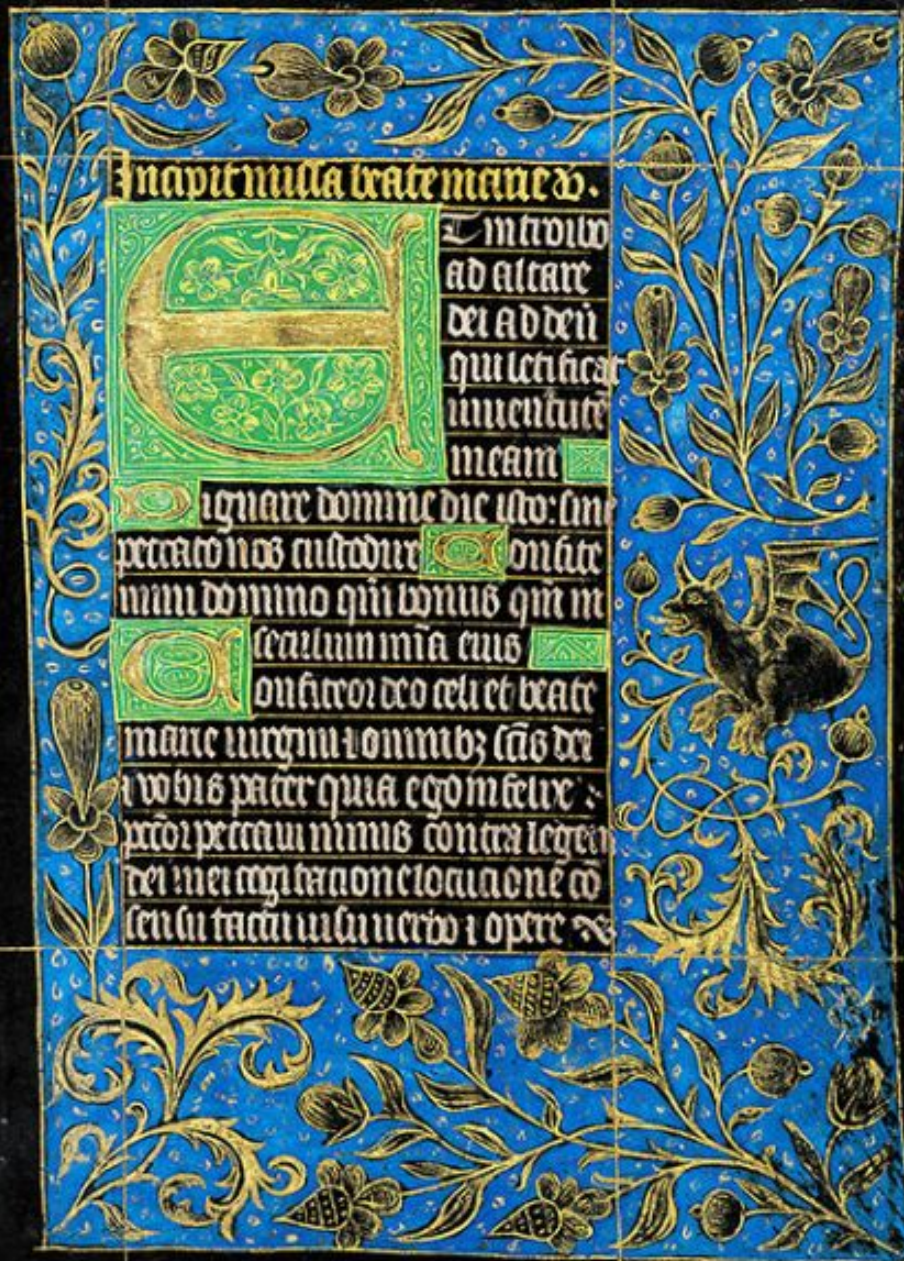 Incipit missa beate marie v.
Et introibo
ad altare
dei ad deū
qui letificat
iuuentutē
meam
Dignare domine die isto: sine
peccato nos custodire Confite
mini domino qm̄ bonus qm̄ in
seculum mīa eius
Confiteor deo celi et beate
marie uirgini ⁊ omnibꝫ scīs dei
⁊ vobis pater quia ego infelix
pctōr peccaui nimis contra legem
dei mei cogitatione locutione cō
sensu tactu uisu uerbo ⁊ opere